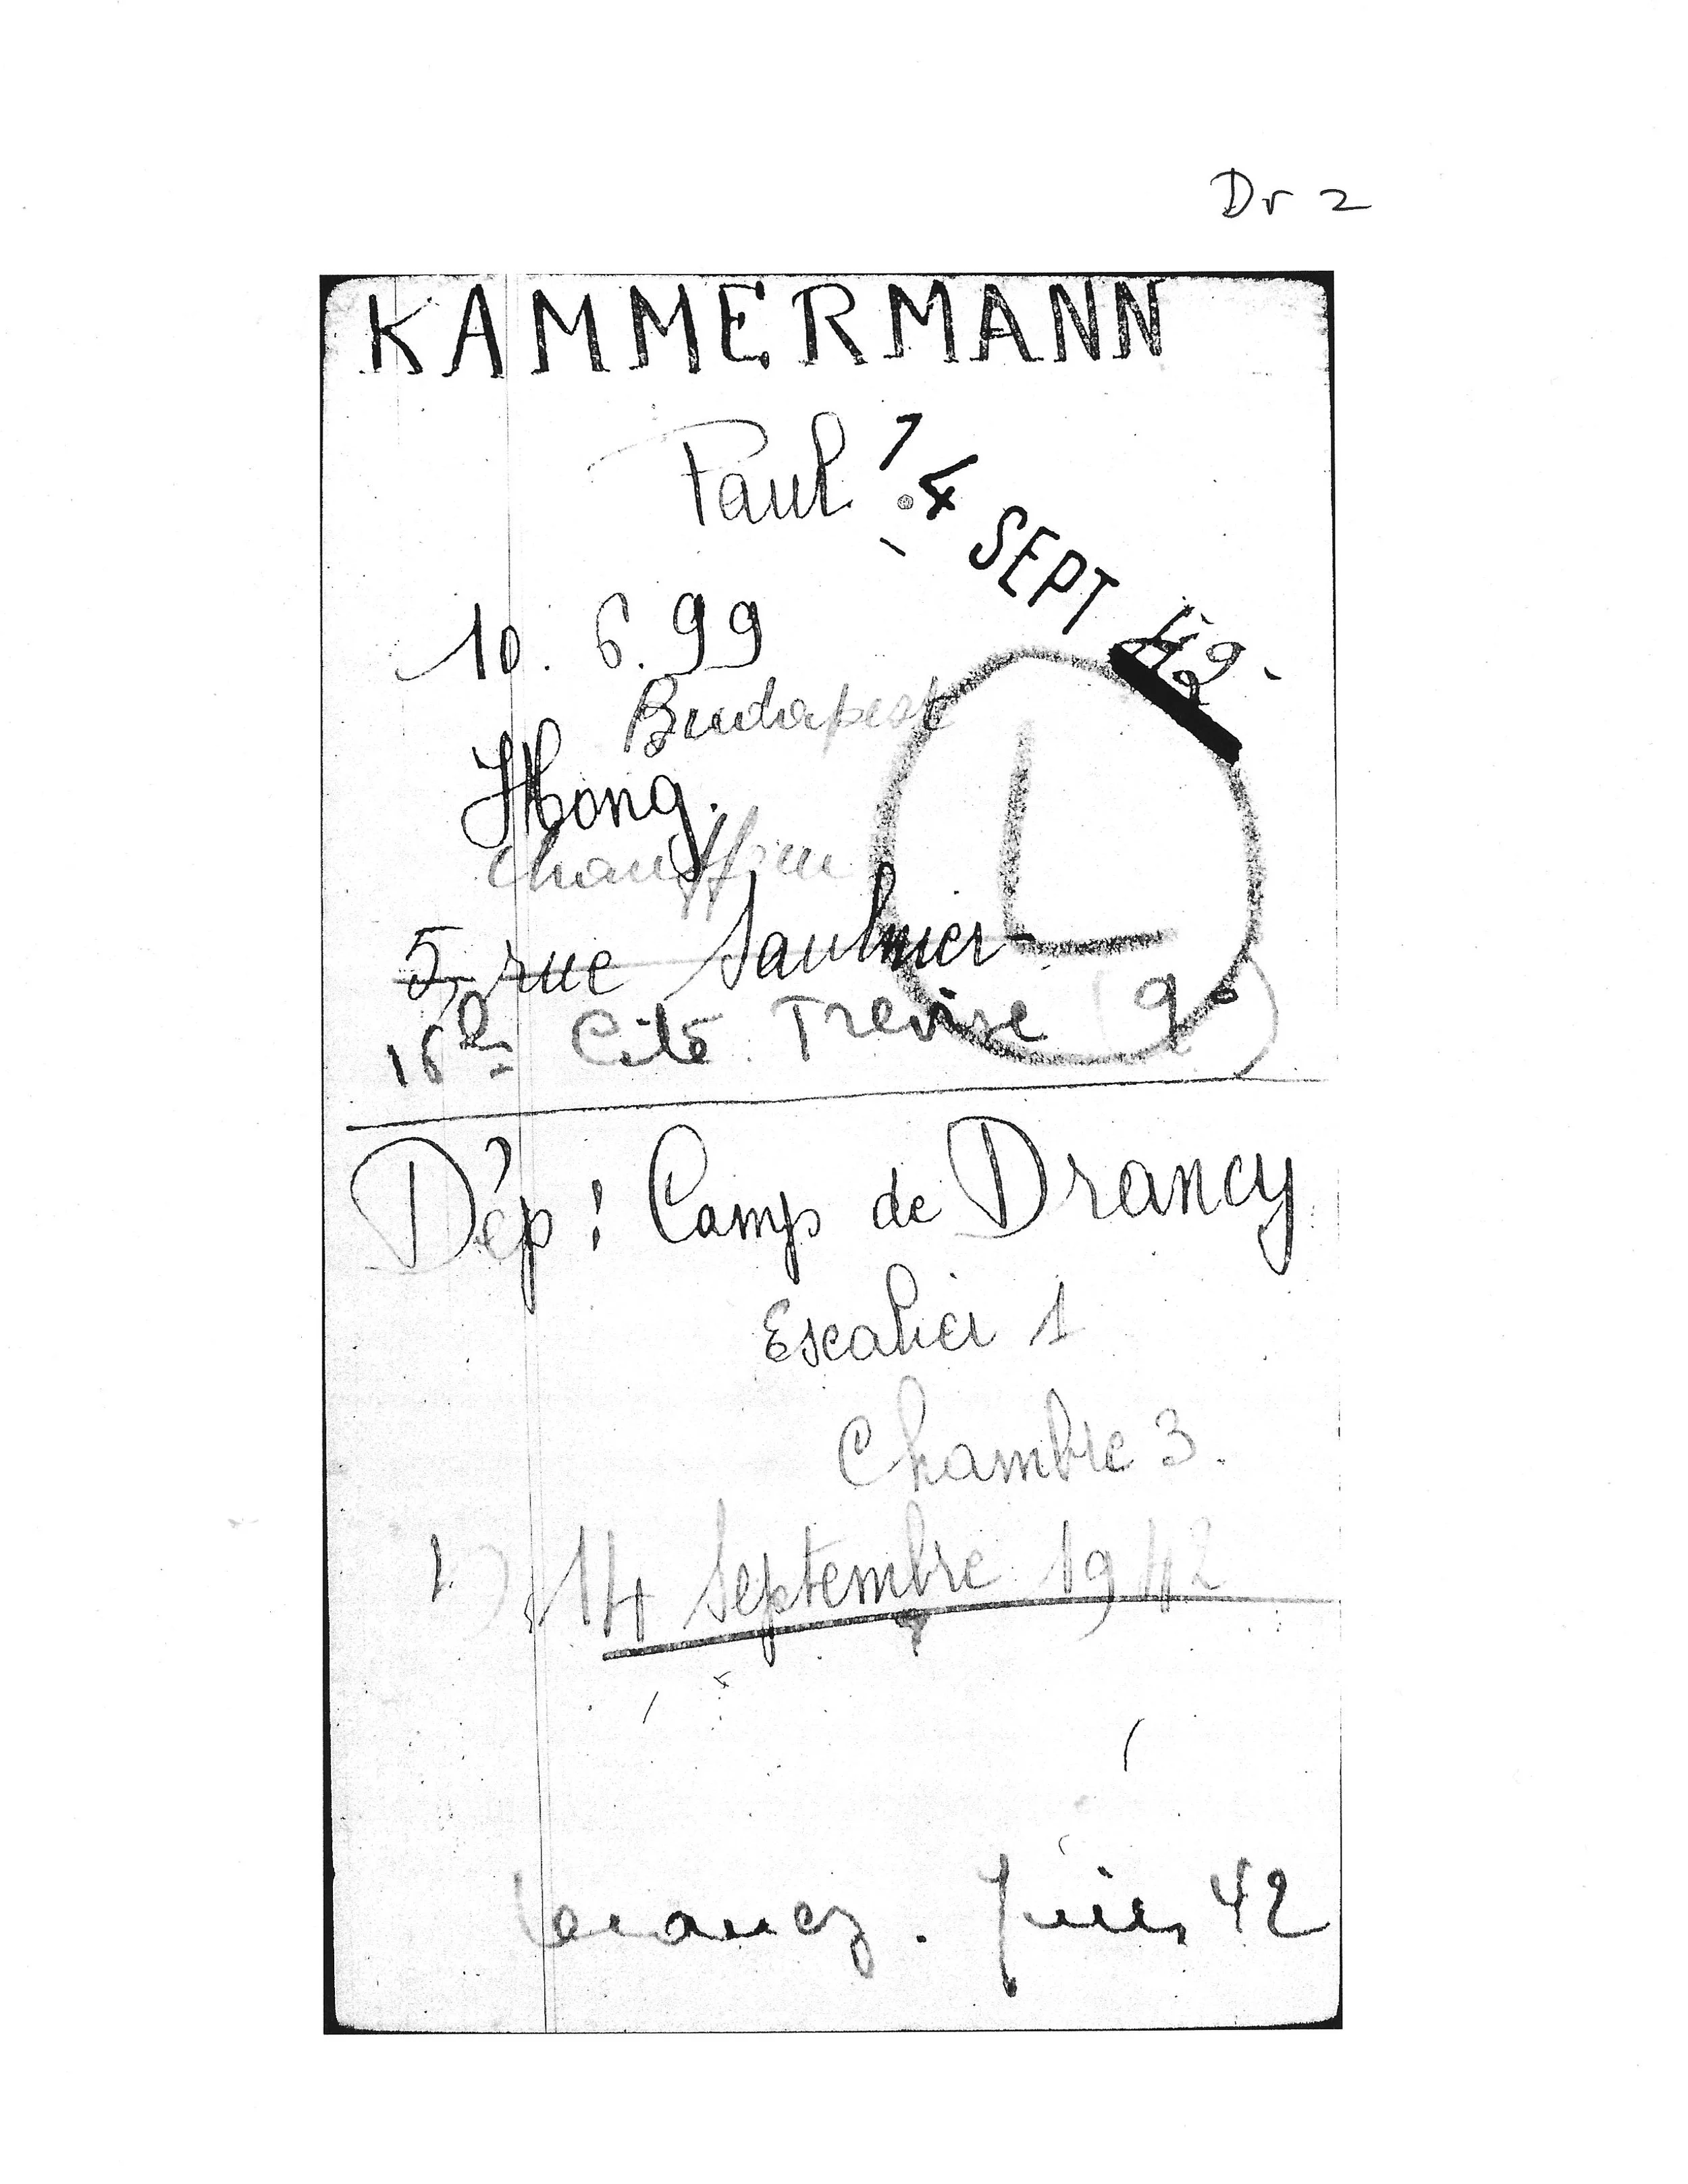 Dr 2
KAMMERMANN
Paul
14 SEPT 42
10. 6. 99
Budapest
Hong.
Chauffeur
L
5, rue Saulnier
Cité Trévise (9e)
Dép: Camp de Drancy
Escalier 1
Chambre 3.
14 Septembre 1942
42